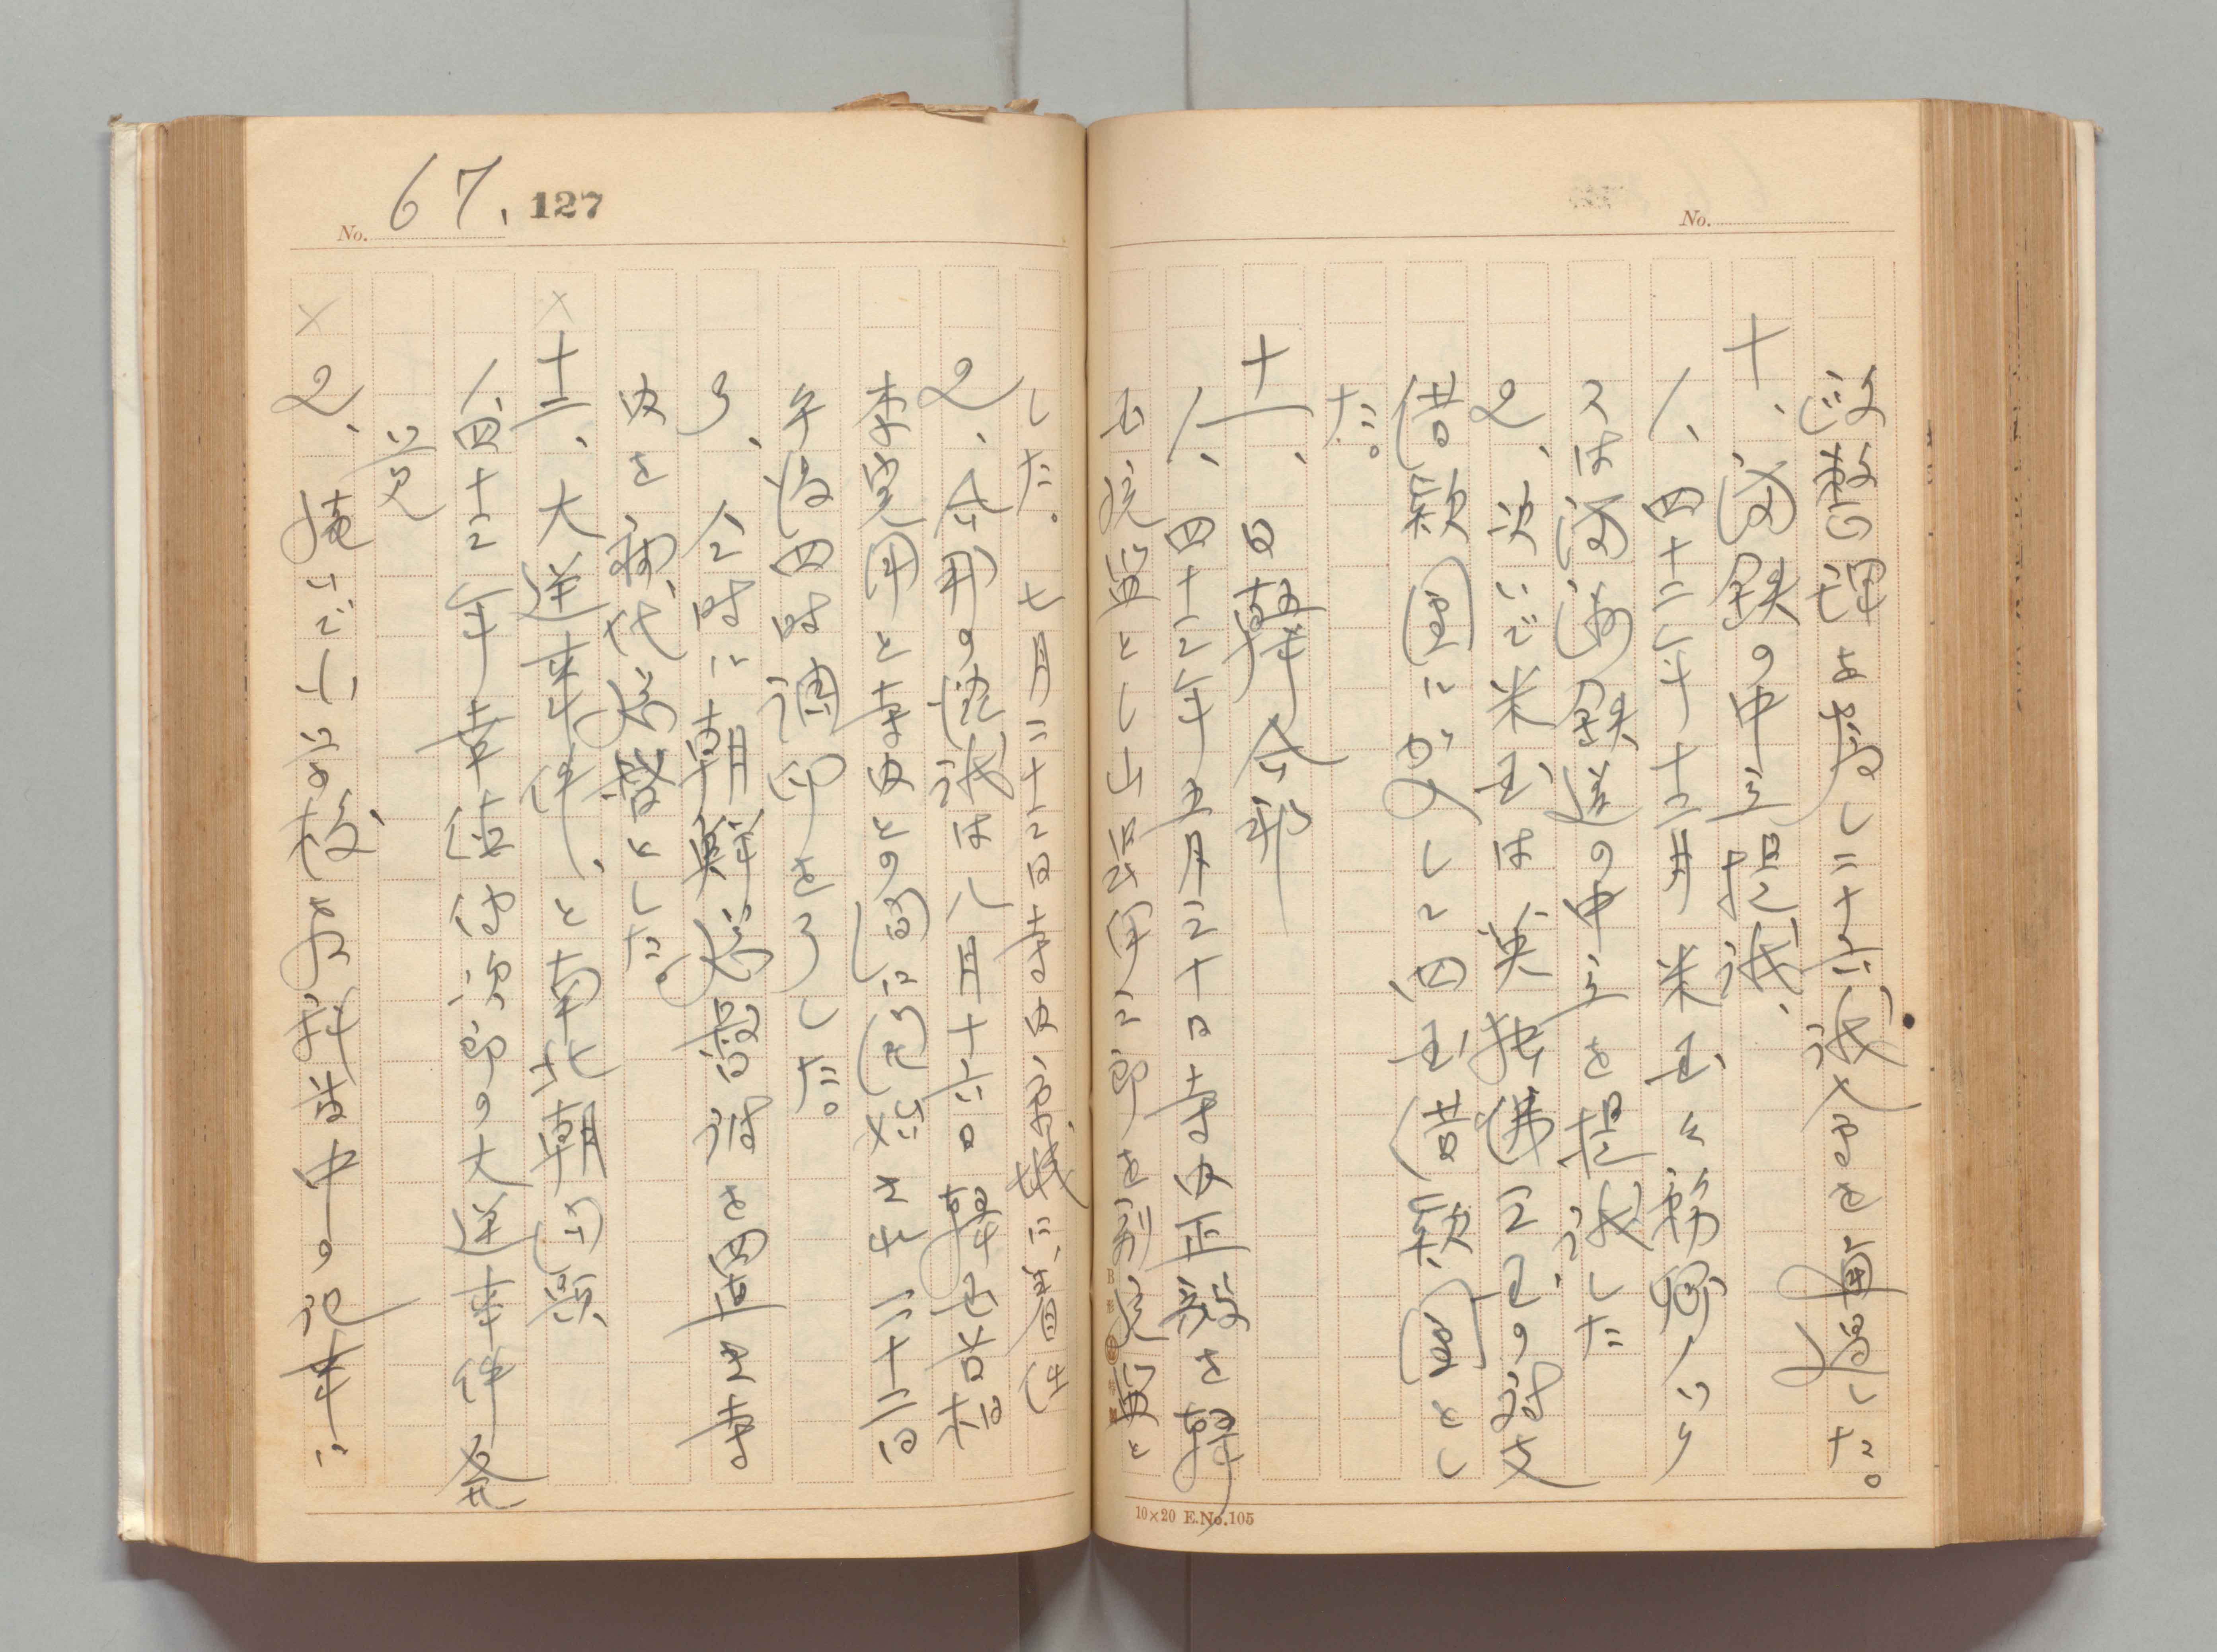 し二十六議会を通過した。
十、満鉄の中立提議、
1、四十二年十二月米国々務卿ノック
スは満洲鉄道の中立を提議した
2、次いで米国は英独佛三国の対支
借款団に加入して四国借款団とし
た。
十一、日韓合邦
1、四十三年五月三十日寺内正毅を韓
国統監とし山県伊三郎を副統監と
No.
10×20 E.No.105
No. 67. 127
した。七月二十三日寺内京城に着任
2、合邦の議は八月十六日韓国首相
李完用と寺内との間に開始され二十二日
午後四時調印を了した。
3、仝時に朝鮮総督府を置き寺
内を初代総督とした。
×十二、大逆事件、と南北朝問題
1、四十三年幸徳伝次郎の大逆事件発
覚
×2、続いで小学校教科書中の記事に